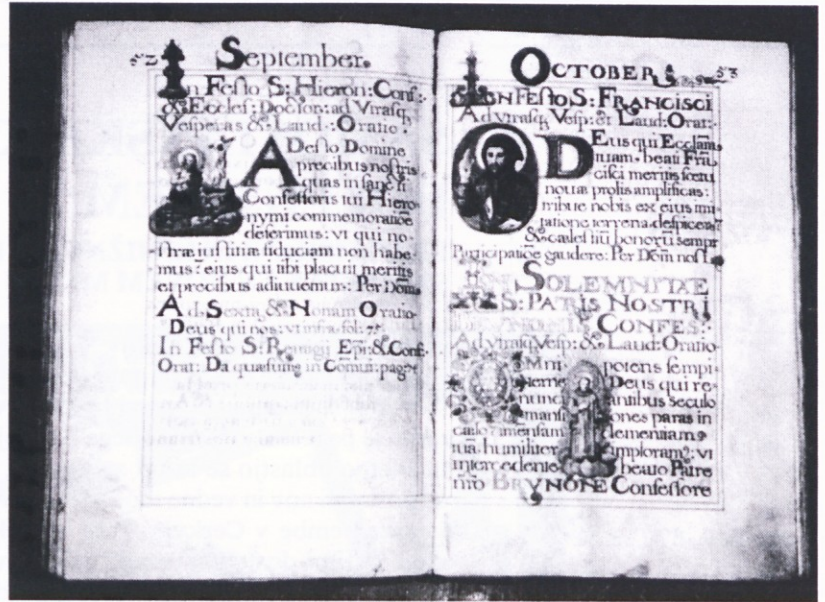 52 September.
In Festo S: Hieron: Conf:
& Eccles: Doctor: ad Vtrasq
Vesperas & Laud: Oratio.
ADesto Domine
precibus nostris
quas in sancti
Confessoris tui Hiero-
nymi commemoratiõe
deferimus: vt qui no-
stræ iustitiæ fiduciam non habe-
mus: eius qui tibi placuit meritis
et precibus adiuuemus: Per Dom̃
Ad Sextã & Nonam Oratio
Deus qui nos: vt infra fol: 75
In Festo S: Remigij Epĩ: & Conf:
Orat: Da quæsum9 in Com̃ui: pag
OCTOBER 53
IN FESto S: FRANCISCI
Ad vtrasq Vesp: et Laud: Orat:
DEus qui Eccl̃am
tuam, beati Frã
cisci meritis fœtu
nouæ prolis amplificas:
tribue nobis ex eius imi
tatione terrena despicere,
& cælestiũ honorũ sempr
Participatiõe gaudere: Per Dom̃ nost
IN SOLEMNITAE
S: PATRIS NOSTRI
CONFES:
Ad vtrasq Vesp: & Laud: Oratio
Mni- potens sempi-
terne Deus qui re-
nunci antibus seculo
mansi ones paras in
cælo: imensam clementiam
tuã: humiliter imploram9: vt
intercedente beato Patre
nr̃o BRVNONE Confessore